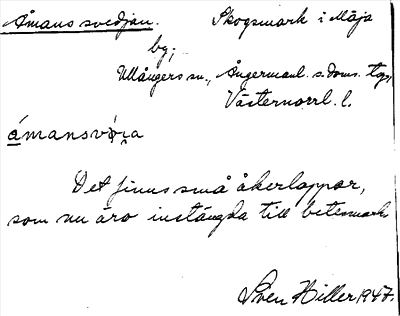 Åmans svedjan. Skogsmark i Mäja
by,
Ullångers sn., Ångermanl. s. doms. tgs,
Västernorrl. l.
Det finns små åkerlappar,
som nu äro instängda till betesmark
Sven Hiller 1947.